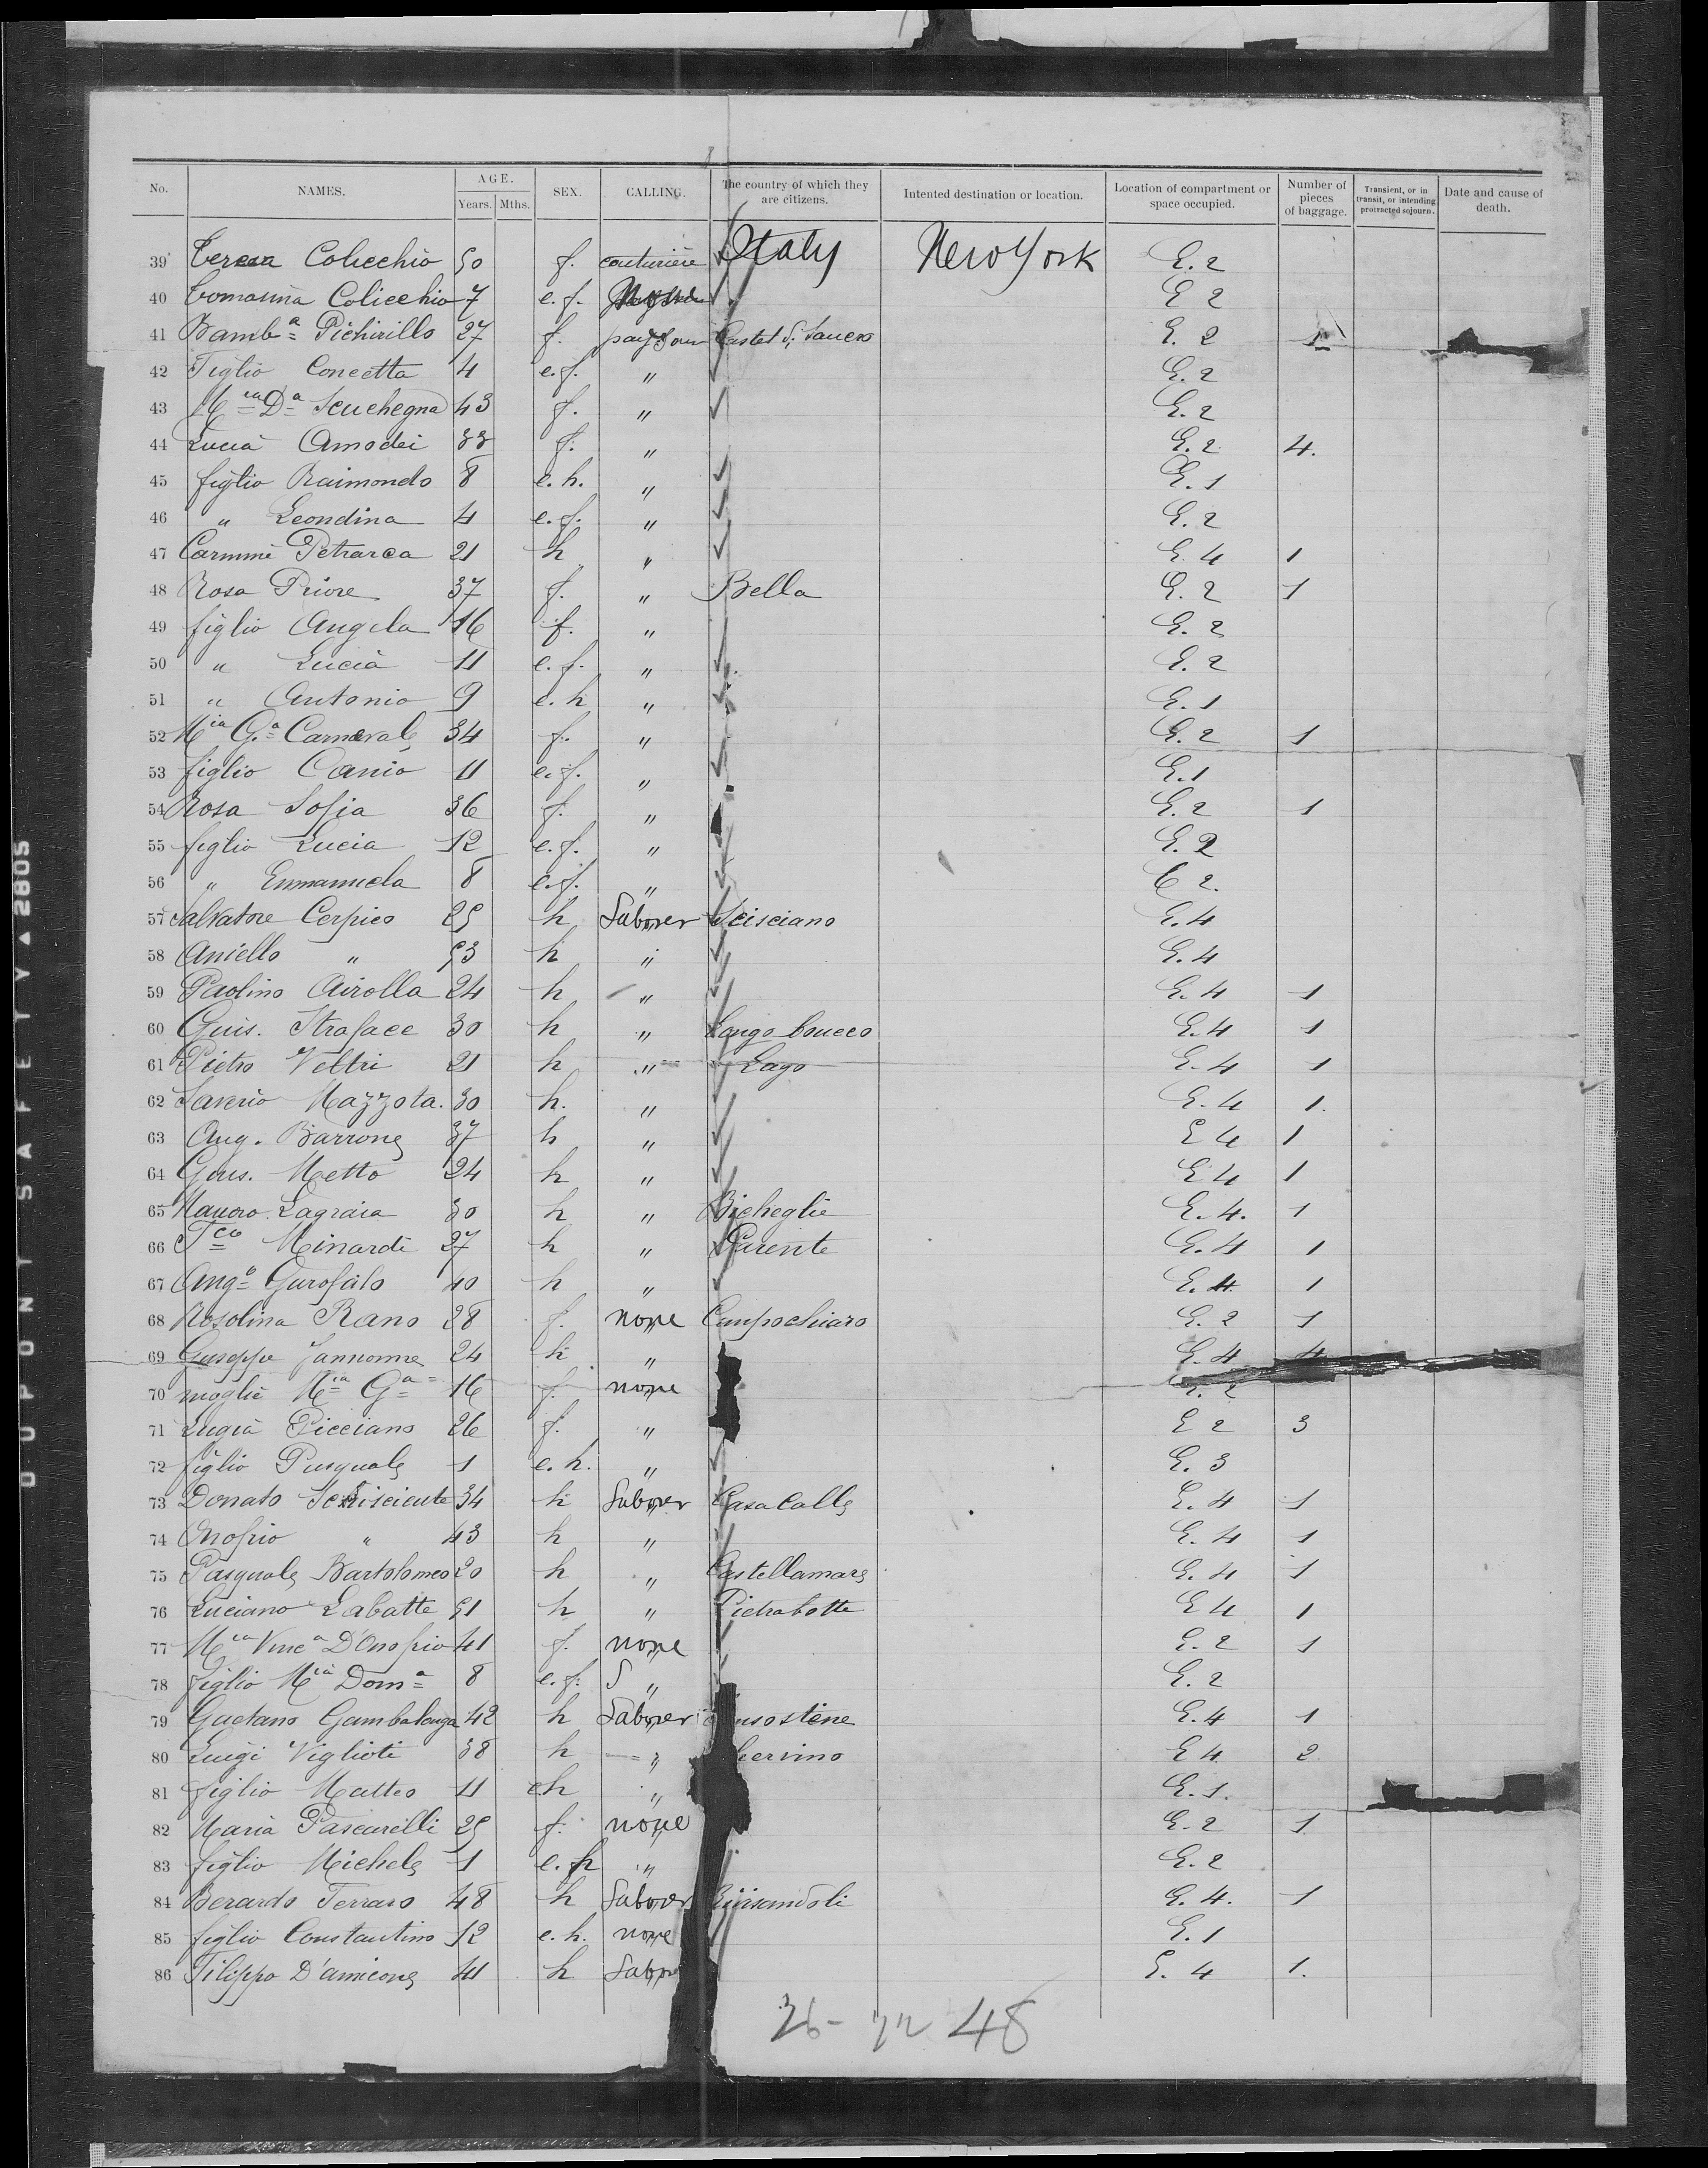 No. NAMES. AGE. Years. Mths. SEX. CALLING. The country of which they are citizens. Intented destination or location. Location of compartment or space occupied. Number of pieces of baggage. Transient, or in transit, or intending protracted sojourn. Date and cause of death.
39 Teresa Colicchio 50 f. couturière Italy New York E. 2
40 Tomasina Colicchio 7 e. f. E 2
41 Bamb.a Pichirillo 27 f. paysan Castel di Sancro E. 2 1
42 Figlio Concetta 4 e. f. " E. 2
43 Mia Da Scuchegna 43 f. " E. 2
44 Lucia Amodei 33 f. " E. 2 4.
45 figlio Raimondo 8 e. h. " E. 1
46 " Leondina 4 e. f. " E. 2
47 Carmine Petrarca 21 h " E. 4 1
48 Rosa Priore 37 f. " Bella E. 2 1
49 figlio Angela 16 f. " E. 2
50 " Lucia 11 e. f. " E. 2
51 " Antonio 9 e. h " E. 1
52 Mia Ga Carnevale 34 f. " E. 2 1
53 figlio Canio 11 e. f. " E. 1
54 Rosa Sofia 36 f. " E. 2 1
55 figlio Lucia 12 e. f. " E. 2
56 " Emmanuela 8 e. f. " E 2.
57 Salvatore Cerpico 25 h Laborer Scisciano E. 4
58 Aniello " 53 h " E. 4
59 Paolino Airolla 24 h " E. 4 1
60 Guis. Straface 30 h " Longo bucco E. 4 1
61 Pietro Veltri 21 h " Lago E. 4 1
62 Saverio Mazzota. 30 h. " E. 4 1.
63 Ang. Barrone 37 h " E 4 1
64 Gius. Metto 24 h " E 4 1
65 Mauro Lagraia 30 h " Bicheglie E. 4. 1
66 Fco Minardi 27 h " Parente E. 4 1
67 Ango Garofalo 40 h " E. 4 1
68 Rosolina Rano 28 f. none Campochiaro E. 2 1
69 Guseppe Jannonne 24 h " E. 4 4
70 moglie Mia Ga 16 f. none E. 2
71 Lugia Picciano 26 f. " E 2 3
72 figlio Pasquale 1 e. h. " E. 3
73 Donato 34 h Laborer Casa Calle E. 4 1
74 Onofrio " 43 h " E. 4 1
75 Pasquale Bartolomeo 20 h " Castellamare E. 4 1
76 Luciano Labatte 51 h " Pietrabotte E 4 1
77 Mia Vinca D'Onofrio 41 f. none E. 2 1
78 figlio Mia Doma 8 e. f. " E. 2
79 Gaetano Gambalonga 42 h Laborer E. 4 1
80 Luigi Viglioti 38 h " E 4 2
81 figlio Matteo 11 eh " E. 1.
82 Maria Pascurelli 25 f. none E. 2 1
83 figlio Michele 1 e. h " E. 2
84 Berardo Ferraro 48 h Laborer E. 4. 1
85 figlio Constantino 12 e. h. none E. 1
86 Filippo D'amicone 41 h E. 4 1.
48
DUPONT SAFETY ▲ 2805